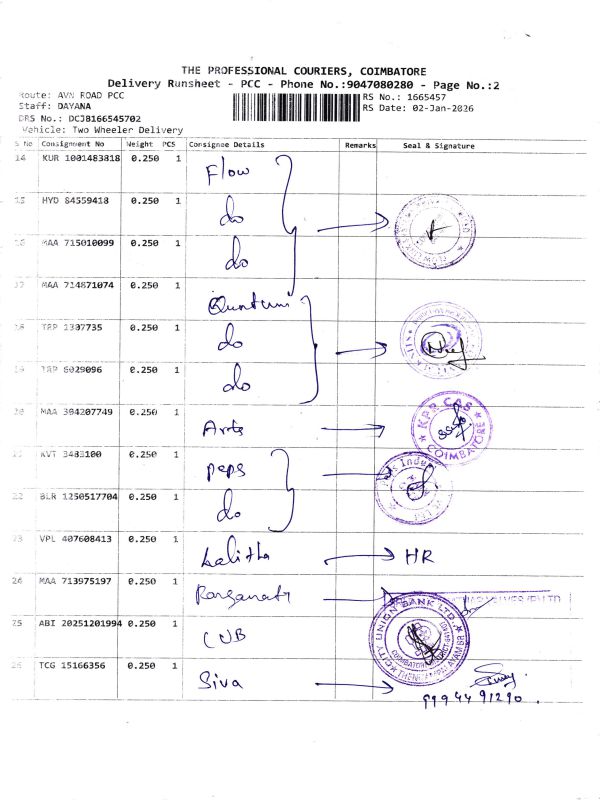 THE PROFESSIONAL COURIERS, COIMBATORE
Delivery Runsheet - PCC - Phone No.:9047080280 - Page No.:2
Route: AVN ROAD PCC
Staff: DAYANA
DRS No.: DCJB166545702
Vehicle: Two Wheeler Delivery
RS No.: 1665457
RS Date: 02-Jan-2026
S No Consignment No Weight PCS Consignee Details Remarks Seal & Signature
14 KUR 1001483818 0.250 1 Flow
15 HYD 84559418 0.250 1 do
16 MAA 715010099 0.250 1 do
17 MAA 714871074 0.250 1
18 1307735 0.250 1 do
19 6029096 0.250 1 do
20 MAA 304207749 0.250 1 Arts KPR CAS COIMBATORE
21 KVT 3483100 0.250 1 peps
22 BLR 1250517704 0.250 1 do
23 VPL 407608413 0.250 1 Lalitha HR
24 MAA 713975197 0.250 1
25 ABI 20251201994 0.250 1 CUB CITY UNION BANK LTD.
26 TCG 15166356 0.250 1 Siva
9994491290.